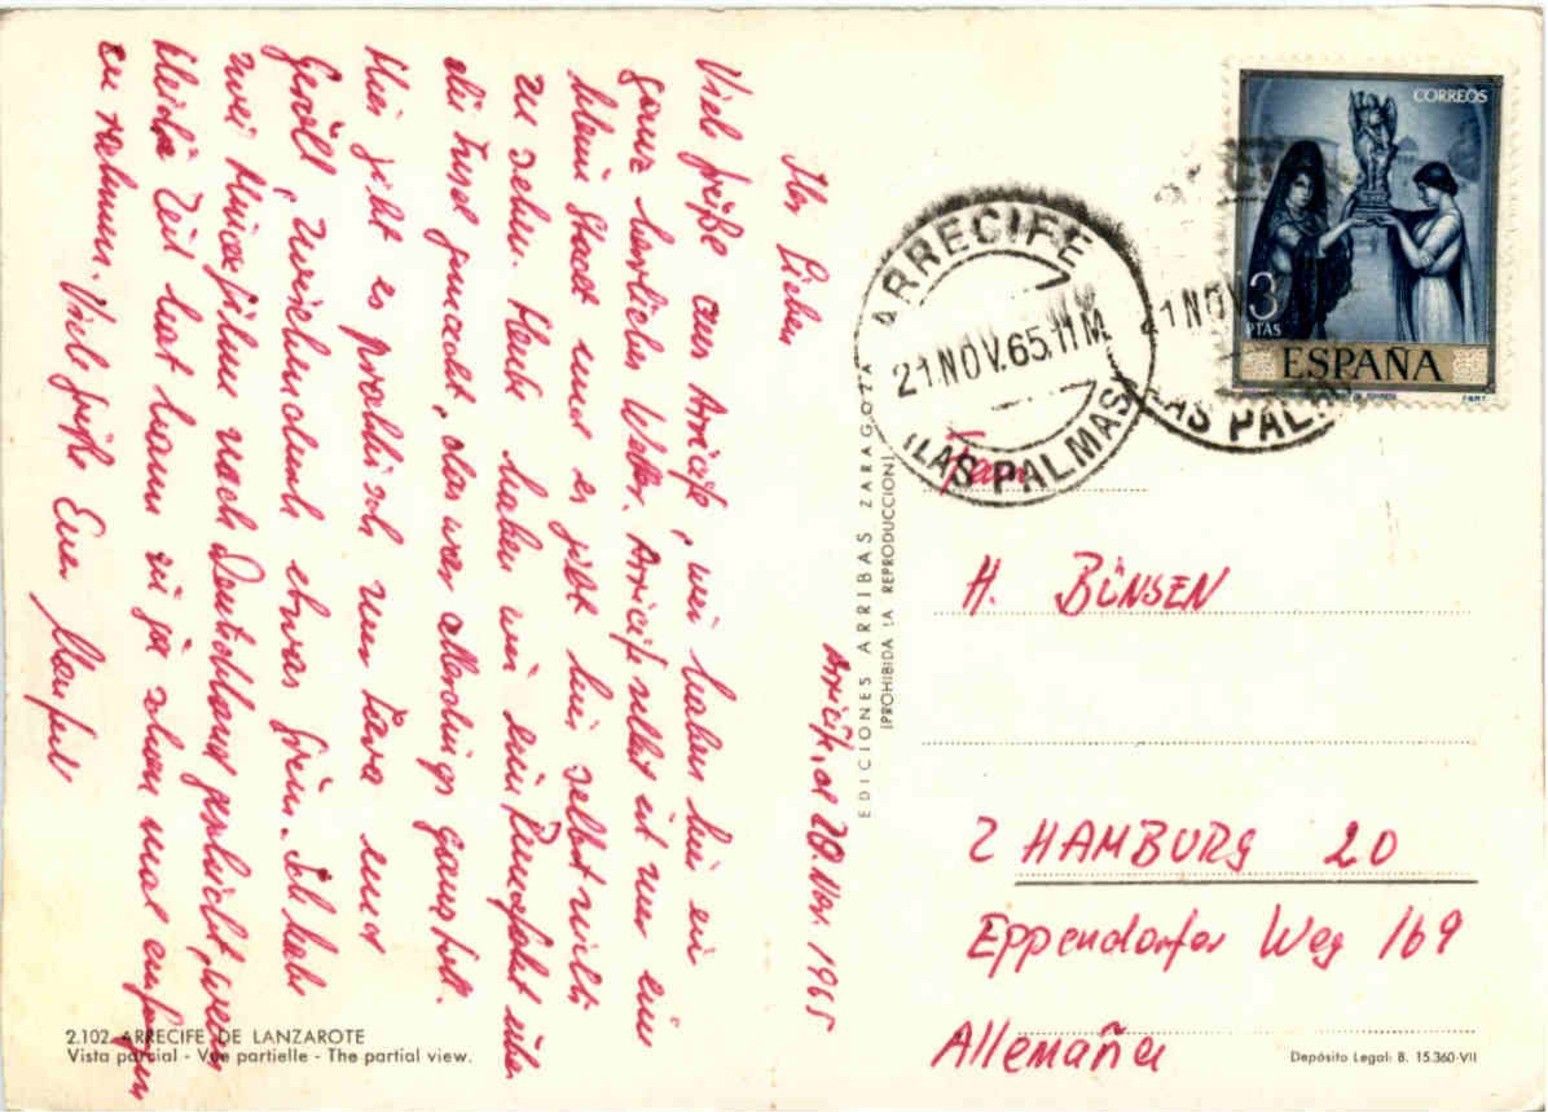 Arrecife, d 20. Nov. 1965
Ihr Lieben
Viele Grüße aus Arrecife, wir haben hier ein
ganz herrliches Wetter. Arrecife selbst ist nur eine
kleine Stadt und es gibt hier selbst nichts
zu sehen. Heute haben wir eine Rundfahrt über
die Insel gemacht, das war allerdings ganz toll.
Hier gibt es praktisch nur Lava und
Geröll, zwischendurch etwas Grün. Ich habe
zwei nach Deutschland geschickt, wenn
Ihr Zeit habt kann ja schon mal anfangen
zu rahmen. Viele Grüße Euer Manfred
2.102 ARRECIFE DE LANZAROTE
Vista parcial - Vue partielle - The partial view.
EDICIONES ARRIBAS ZARAGOZA
(PROHIBIDA LA REPRODUCCION)
ARRECIFE
21 NOV. 65. 11 M
(LAS PALMAS)
1 NOV
LAS PAL
CORREOS
3
PTAS
ESPAÑA
F.N.M.T.
Fam
H. BÜNSEN
2 HAMBURG 20
Eppendorfer Weg 169
Allemaña
Depósito Legal: B. 15.360-VII